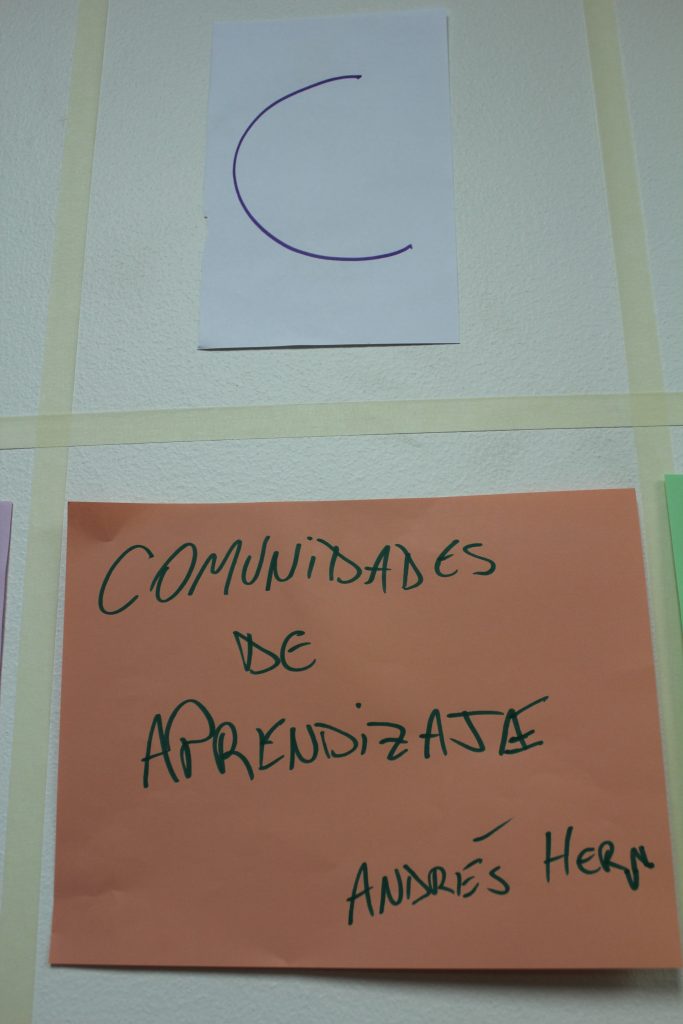 C
COMUNiDADES
DE
APRENDiZAJE
ANDRÉS HERN